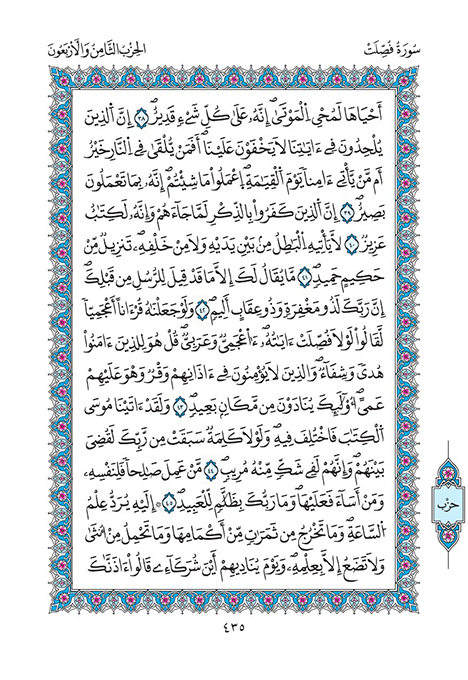 سُورَةُ فُصِّلَتْ
الحِزْبُ الثَّامِنُ وَالْأَرْبَعُونَ
أَحْيَاهَا لَمُحْيِ الْمَوْتَىٰ إِنَّهُ عَلَىٰ كُلِّ شَيْءٍ قَدِيرٌ ٣٨ إِنَّ الذِينَ
يُلْحِدُونَ فِي ءَايَٰتِنَا لَا يَخْفَوْنَ عَلَيْنَا أَفَمَنْ يُّلْقَىٰ فِي النَّارِ خَيْرٌ
أَم مَّنْ يَّأْتِي ءَامِنًا يَوْمَ الْقِيَٰمَةِ اِعْمَلُوا مَا شِئْتُمْ إِنَّهُ بِمَا تَعْمَلُونَ
بَصِيرٌ ٣٩ إِنَّ الذِينَ كَفَرُوا بِالذِّكْرِ لَمَّا جَاءَهُمْ وَإِنَّهُ لَكِتَٰبٌ
عَزِيزٌ ٤٠ لَا يَأْتِيهِ الْبَٰطِلُ مِنْ بَيْنِ يَدَيْهِ وَلَا مِنْ خَلْفِهِ تَنزِيلٌ مِّنْ
حَكِيمٍ حَمِيدٍ ٤١ مَا يُقَالُ لَكَ إِلَّا مَا قَدْ قِيلَ لِلرُّسُلِ مِن قَبْلِكَ
إِنَّ رَبَّكَ لَذُو مَغْفِرَةٍ وَذُو عِقَابٍ أَلِيمٍ ٤٢ وَلَوْ جَعَلْنَٰهُ قُرْءَانًا أَعْجَمِيًّا
لَّقَالُوا لَوْلَا فُصِّلَتْ ءَايَٰتُهُ ءَا۬عْجَمِيٌّ وَعَرَبِيٌّ قُلْ هُوَ لِلذِينَ ءَامَنُوا
هُدًى وَشِفَاءٌ وَالذِينَ لَا يُؤْمِنُونَ فِي ءَاذَانِهِمْ وَقْرٌ وَهُوَ عَلَيْهِمْ
عَمًى أُوْلَٰئِكَ يُنَادَوْنَ مِن مَّكَانٍ بَعِيدٍ ٤٣ وَلَقَدْ ءَاتَيْنَا مُوسَى
الْكِتَٰبَ فَاخْتُلِفَ فِيهِ وَلَوْلَا كَلِمَةٌ سَبَقَتْ مِن رَّبِّكَ لَقُضِيَ
بَيْنَهُمْ وَإِنَّهُمْ لَفِي شَكٍّ مِّنْهُ مُرِيبٍ ٤٤ مَّنْ عَمِلَ صَٰلِحًا فَلِنَفْسِهِ
وَمَنْ أَسَاءَ فَعَلَيْهَا وَمَا رَبُّكَ بِظَلَّٰمٍ لِّلْعَبِيدِ ٤٥ إِلَيْهِ يُرَدُّ عِلْمُ
السَّاعَةِ وَمَا تَخْرُجُ مِن ثَمَرَٰتٍ مِّنْ أَكْمَامِهَا وَمَا تَحْمِلُ مِنْ أُنثَىٰ
وَلَا تَضَعُ إِلَّا بِعِلْمِهِ وَيَوْمَ يُنَادِيهِمْ أَيْنَ شُرَكَاءِي قَالُوا ءَاذَنَّٰكَ
حزب
٤٣٥